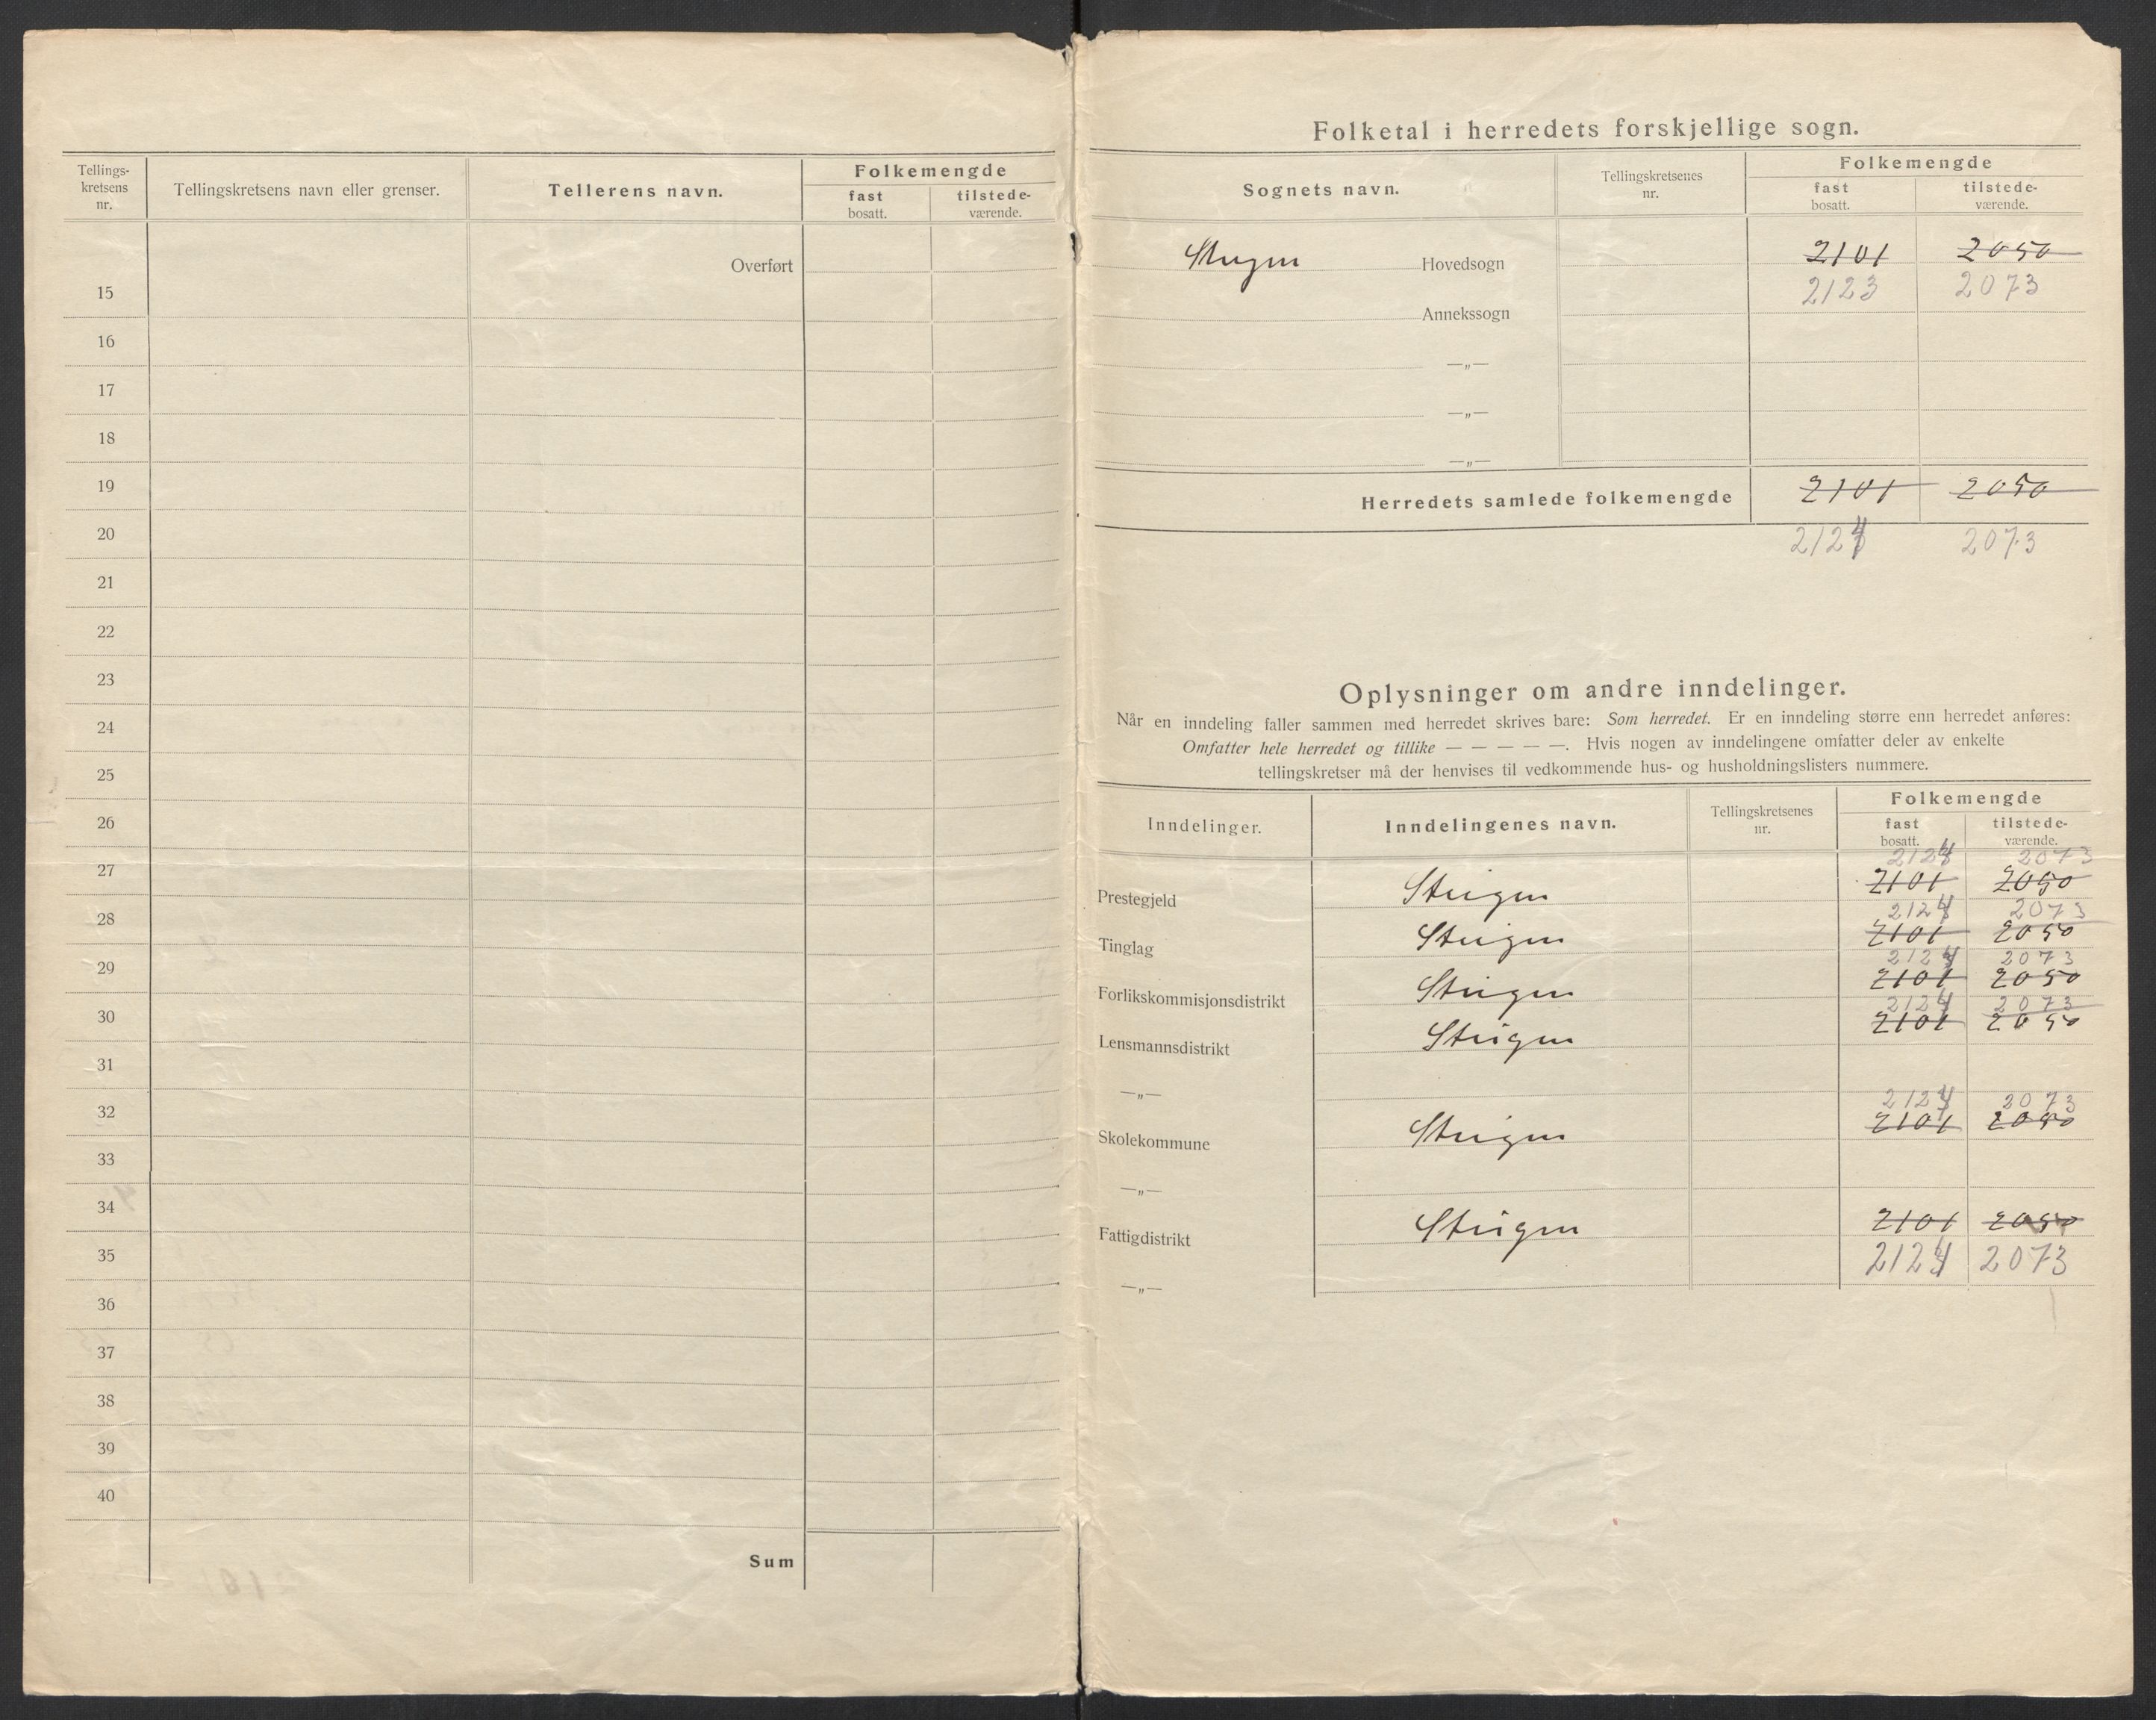 Tellings-
kretsens
nr.
Tellingskretsens navn eller grenser.
Tellerens navn.
Folkemengde
fast
bosatt.
tilstede-
værende.
Overført
15
16
17
18
19
20
21
22
23
24
25
26
27
28
29
30
31
32
33
34
35
36
37
38
39
40
Sum
Folketal i herredets forskjellige sogn.
Sognets navn.
Tellingskretsenes
nr.
Folkemengde
fast
bosatt.
tilstede-
værende.
Steigen Hovedsogn 2101 2050
2123 2073
Annekssogn
—„—
—„—
—„—
Herredets samlede folkemengde 2101 2050
2124 2073
Oplysninger om andre inndelinger.
Når en inndeling faller sammen med herredet skrives bare: Som herredet. Er en inndeling større enn herredet anføres:
Omfatter hele herredet og tillike — — — — —. Hvis nogen av inndelingene omfatter deler av enkelte
tellingskretser må der henvises til vedkommende hus- og husholdningslisters nummere.
Inndelinger.
Inndelingenes navn.
Tellingskretsenes
nr.
Folkemengde
fast
bosatt.
tilstede-
værende.
2124 2073
Prestegjeld Steigen 2101 2050
2124 2073
Tinglag Steigen 2101 2050
2124 2073
Forlikskommisjonsdistrikt Steigen 2101 2050
2124 2073
Lensmannsdistrikt Steigen 2101 2050
—„—
2124 2073
Skolekommune Steigen 2101 2050
—„—
Fattigdistrikt Steigen 2101 2050
2124 2073
—„—